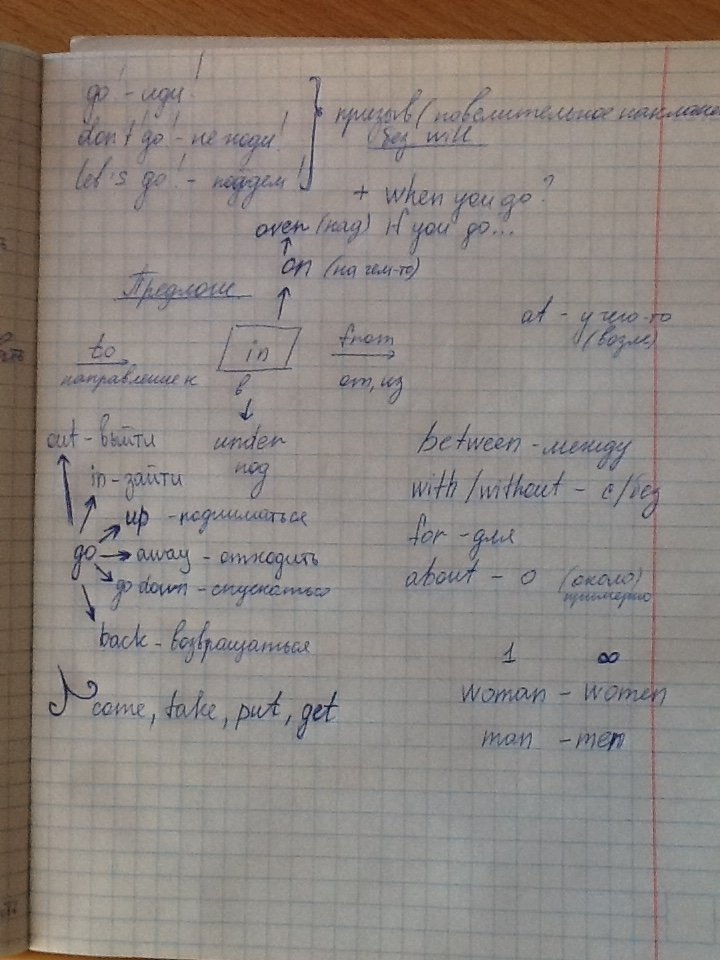 go! - иди!
don't go! - не ходи!
let's go! - пойдем!
призыв (повелительное наклоне
без will
+ when you go?
if you go...
over (над)
on (на чем-то)
Предлоги
to
направление к
in
в
from
от, из
at - у чего-то
(возле)
under
под
out - выйти
in - зайти
up - подниматься
go
away - отходить
go down - спускаться
back - возвращаться
come, take, put, get
between - между
with/without - с/без
for - для
about - о (около)
примерно
1 ∞
woman - women
man - men